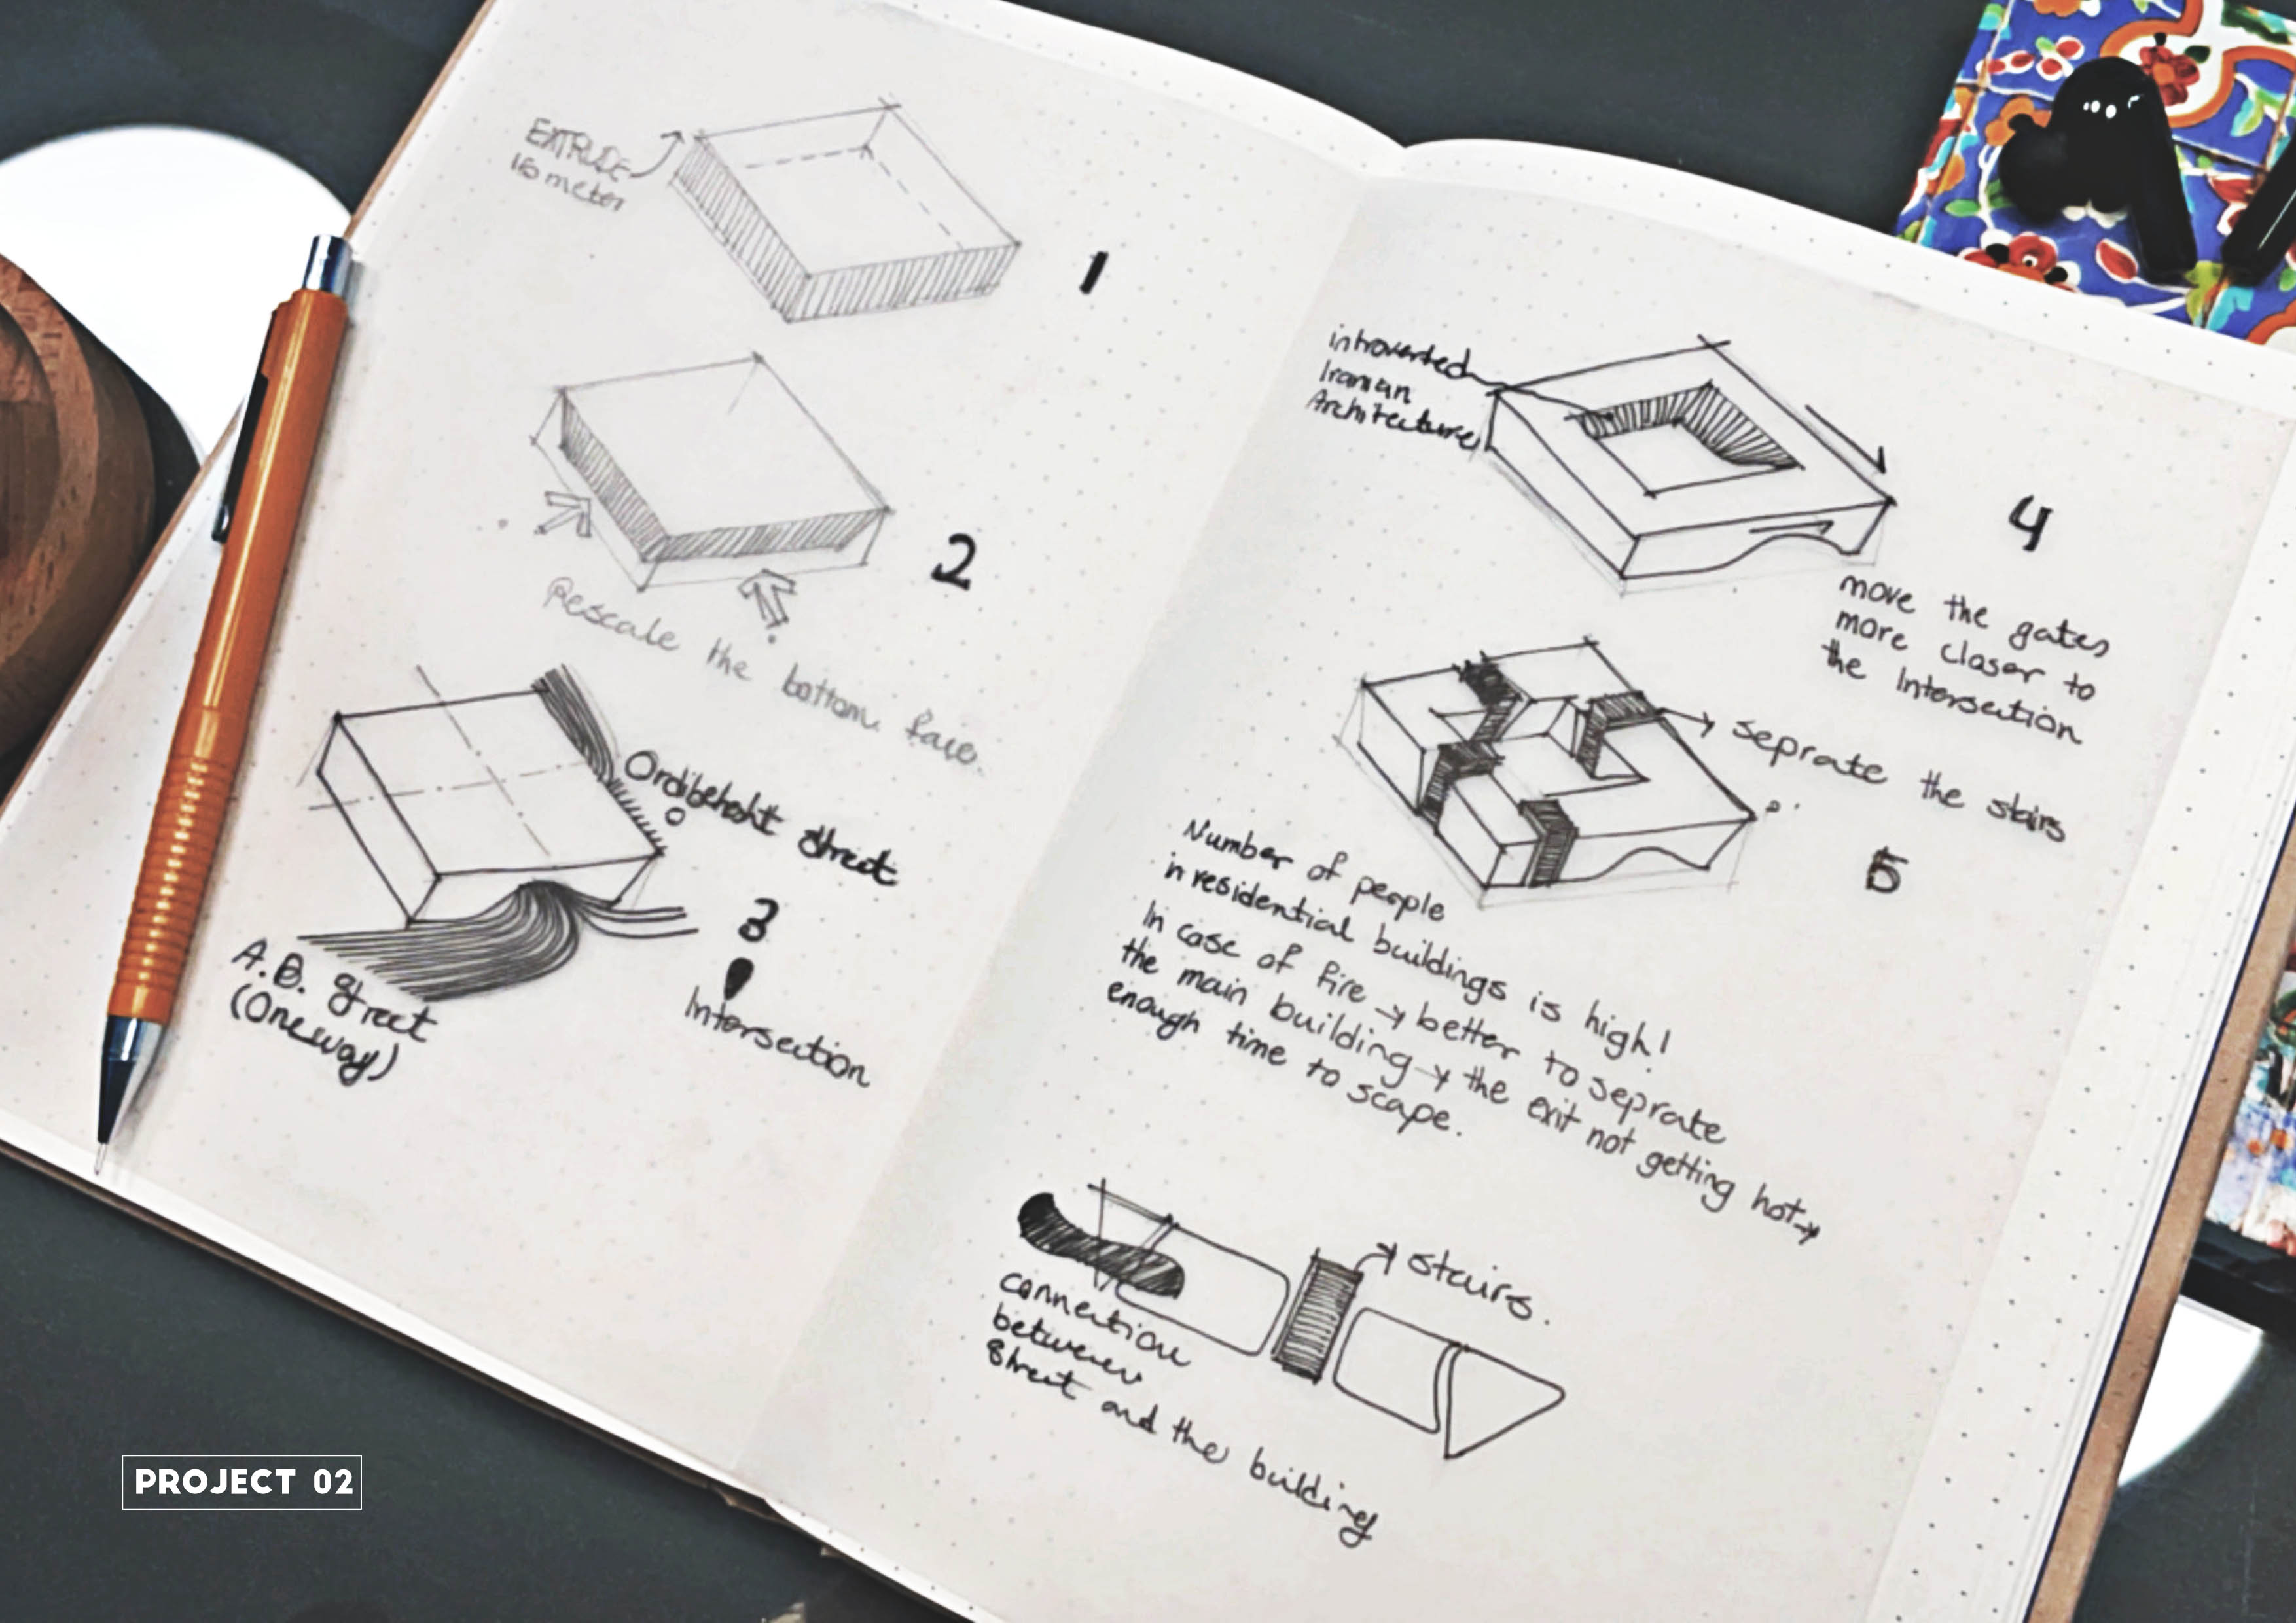 EXTRUDE
meter
1
2
Rescale the bottom face.
Ordibehesht street
3
Intersection
A.B. street
(One way)
introverted
Iranian
Architecture
4
move the gates
more closer to
the Intersection
seprate the stairs
5
Number of people
in residential buildings is high!
In case of fire → better to seprate
the main building → the exit not getting hot →
enough time to scape.
stairs.
connection
between
street and the building
PROJECT 02